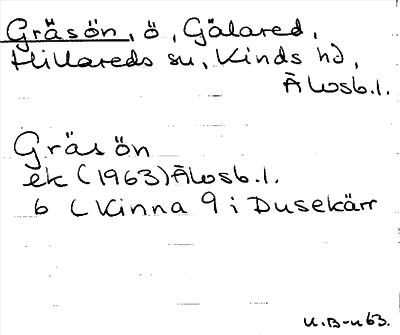 Gräsön, ö, Gälared,
Hillareds sn, Kinds hd,
Älvsb.l.
Gräsön
ek (1963) Älvsb.l.
6 C Kinna 9 i Dusekärr
K.B-n 63.